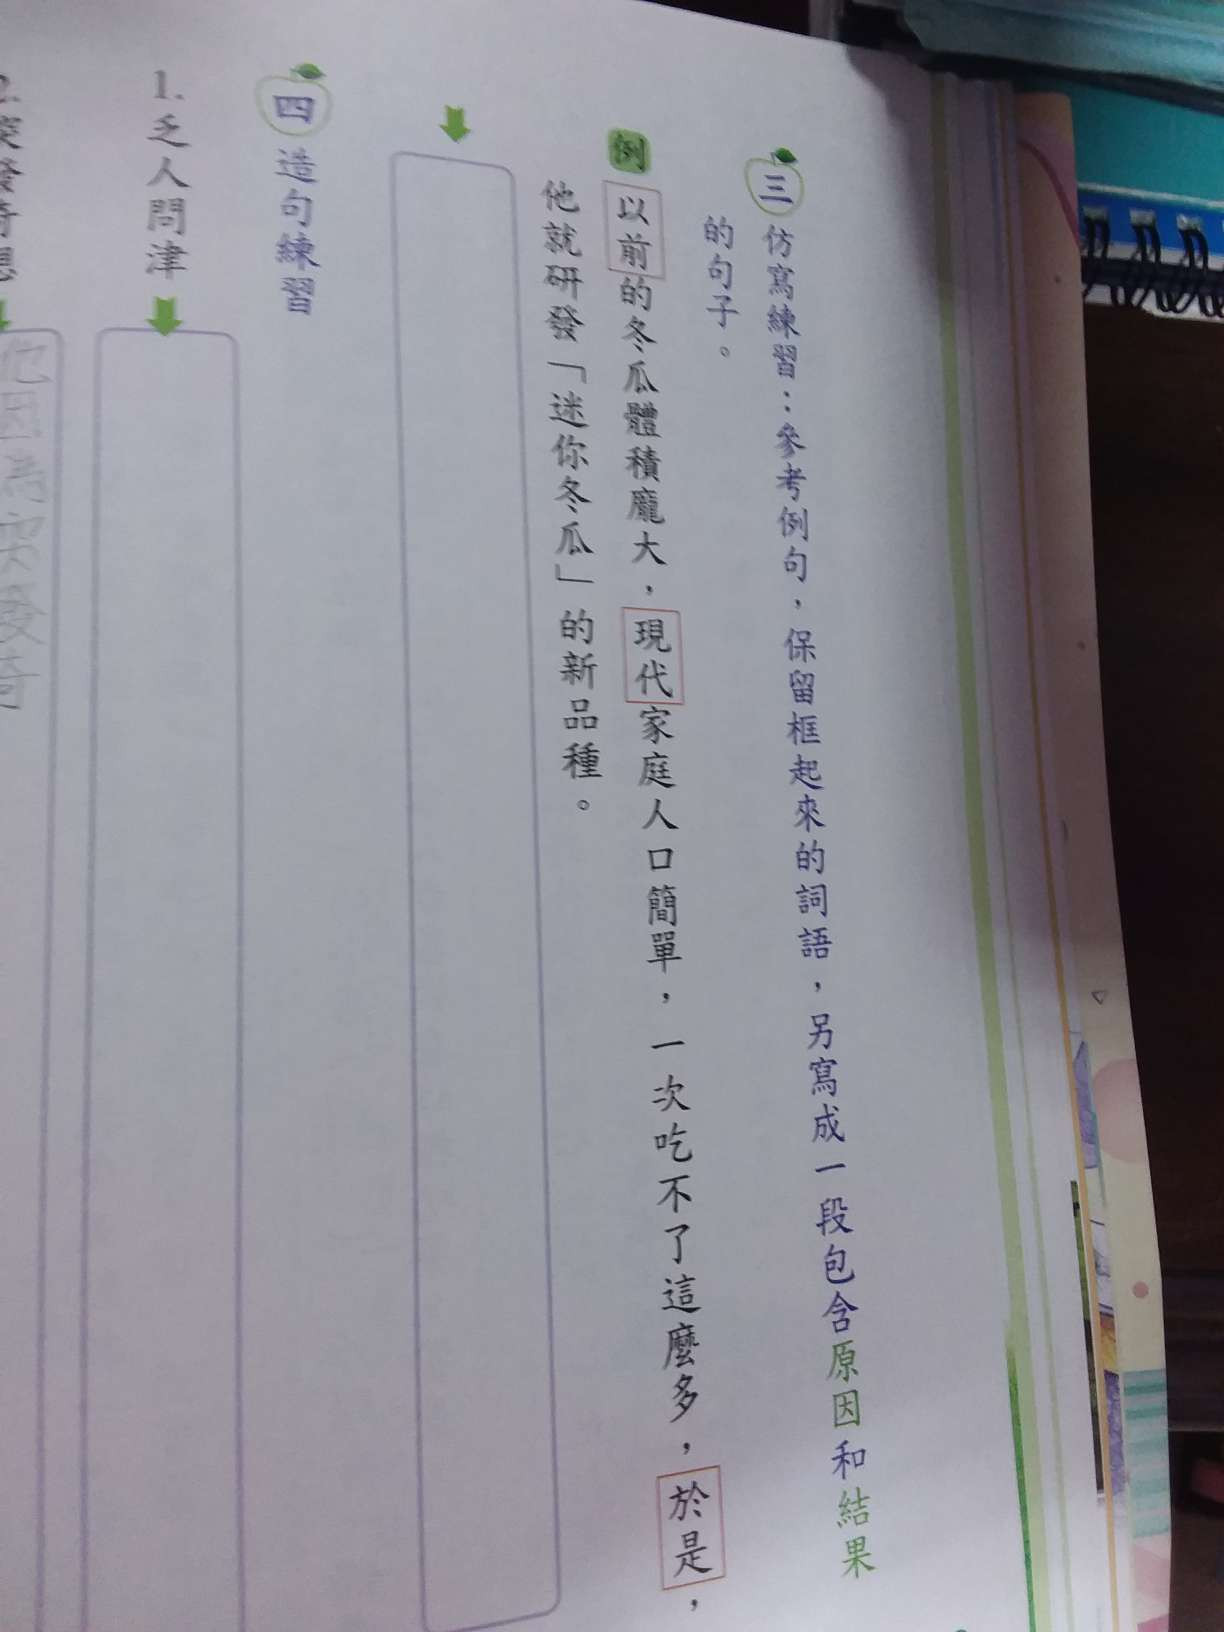 三 仿寫練習：參考例句，保留框起來的詞語，另寫成一段包含原因和結果
的句子。
例 以前的冬瓜體積龐大，現代家庭人口簡單，一次吃不了這麼多，於是，
他就研發「迷你冬瓜」的新品種。
四 造句練習
1. 乏人問津
2. 突發奇想
他因為突發奇